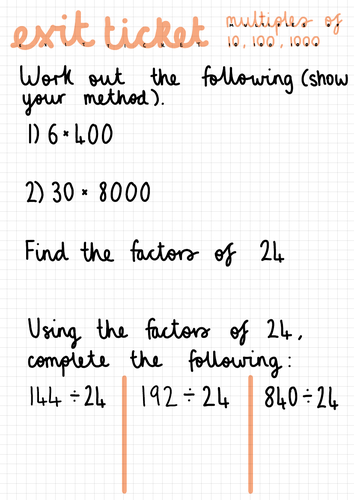 exit ticket
multiples of
10, 100, 1000
Work out the following (show
your method).
1) 6 × 400
2) 30 × 8000
Find the factors of 24
Using the factors of 24,
complete the following:
144 ÷ 24
192 ÷ 24
840 ÷ 24